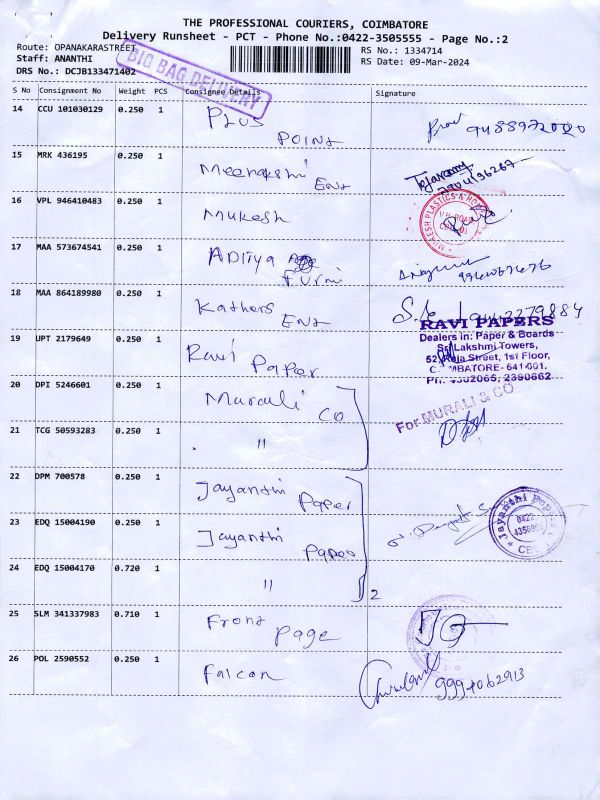 THE PROFESSIONAL COURIERS, COIMBATORE
Delivery Runsheet - PCT - Phone No.:0422-3505555 - Page No.:2
Route: OPANAKARASTREET
RS No.: 1334714
Staff: ANANTHI
RS Date: 09-Mar-2024
DRS No.: DCJB133471402
BIG BAG DELIVERY
S No Consignment No Weight PCS Consignee Details Signature
14 CCU 101030129 0.250 1 Plus
Point 9488972020
15 MRK 436195 0.250 1 Meenakshi
Ent
16 VPL 946410483 0.250 1 Mukesh
17 MAA 573674541 0.250 1 Aditya
Furni
18 MAA 864189980 0.250 1 Kathers
Ent
19 UPT 2179649 0.250 1 Ravi Paper
RAVI PAPERS
Dealers in: Paper & Boards
Sri Lakshmi Towers,
52, Raja Street, 1st Floor,
COIMBATORE-641001.
Ph: 4382065, 2390662
20 DPI 5246601 0.250 1 Murali Co
For MURALI & CO
21 TCG 50593283 0.250 1 "
22 DPM 700578 0.250 1 Jayanthi Paper
23 EDQ 15004190 0.250 1 Jayanthi Paper
Jayanthi Paper
0422-
CBE
24 EDQ 15004170 0.720 1 "
2
25 SLM 341337983 0.710 1 Front
Page
26 POL 2590552 0.250 1 Falcon